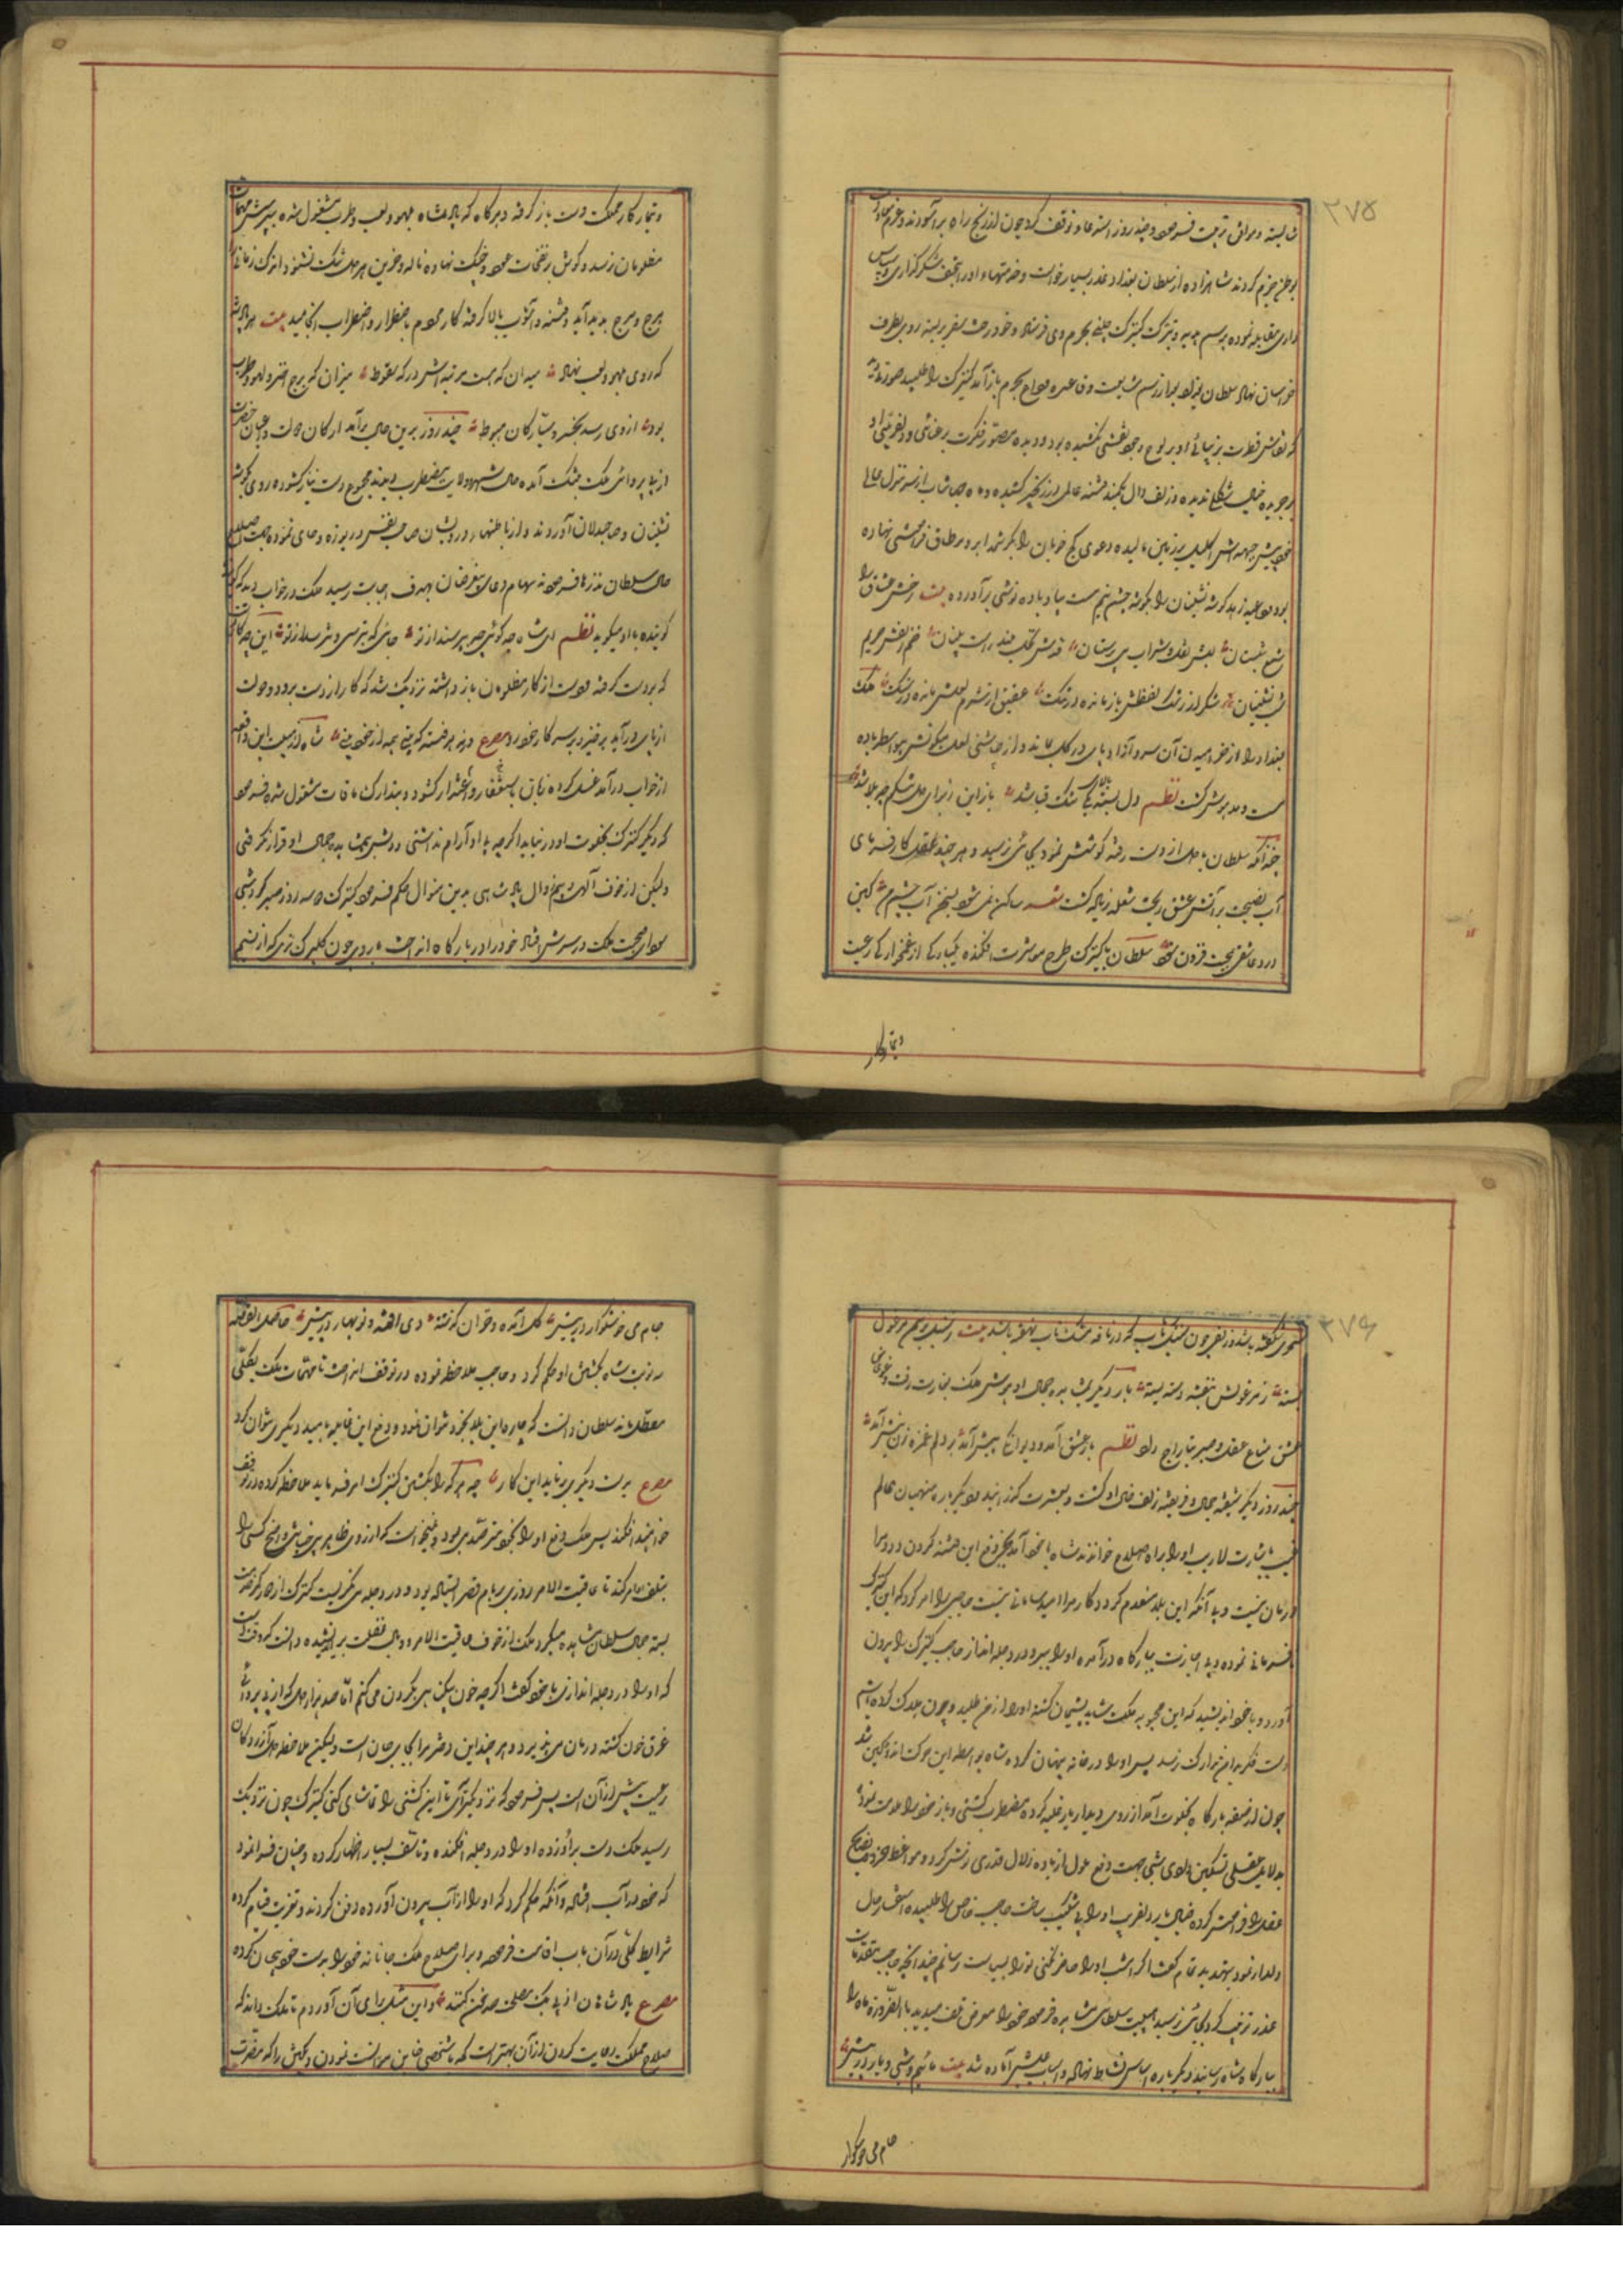 ۲۷۵
شایسته و مراتق تربیت فرمود و چند روز استدعاء توقف کرد چون از رنج راه برآسودند و عزم
وطن جزم کردند شاهزاده از سلطان بغداد عذر بسیار خواست و خدمتهاء او را بتحف شکر گزاری و سپاس
داری مقابله نموده برسم هدیه و تبرک کنیزک چینی بحرم وی فرستاد و خود رخت سفر بربسته روی بطرف
خراسان نهاد سلطان بغداد بعد از رسم مشایعت و قاعده وداع بحرم بازآمد کنیزک را طلبید صورتی دید
که نقاش فطرت بزیبائی او بر لوح وجود نقشی نکشیده بود و دیده مصور فکرت برعنائی و دلفریبی او
بر جریده خیال شکلی ندیده زلف دال بکمند فتنه عالمی در زنجیر کشیده و ماه جهانتاب از سر منزل علا
خود پیش جبهه اش اکلیل بر زمین مالیده دعوی کج خوبان را بکرشمه ابرو بر طاق فراموشی نهاده
بود و عابد زاهد گوشه نشینان را بگوشه چشم نیم مست بباد باده نوشی برآورده بیت رخش عشاق را
شمع شبستان لبش نقل و شراب می پرستان قدش نخلی بلند راست بینان خم زلفش حریم
شب نشینان شکر از رنگ لفظش باز مانده در تنگ عقیق از شرم لعلش مانده در سنگ ملک
بغداد را از خرامیدن آن سرو آزاد پای در گل بماند و از چاشنی لعل میگونش بی واسطه باده
مست و مدهوش گشت نظم دل بسته بالای تنگ قباشد باز این از برای دل تنگم چه بلا شد
چندانکه سلطان با دل از دست رفته کوشش نمود بجائی نرسید و هر چند عقل کارفرمای
آب نصیحت بر آتش عشق ریخت شعله زیاده گشت شعر ساکن نمی شود بسخن آب چشم من کین
درد عاشقی بنصیحت فزون شود سلطان با کنیزک طرح معاشرت افکنده یکبارگی از غمخوارگی رعیت
و تیمار کار
و تیمار کار مملکت دست باز گرفته و هرگاه که پادشاه بلهو و لعب و طرب مشغول شده بپرسش مهمات
مظلومان نرسد و گوش بر نغمات عود و چنگ نهاده ناله و حزین اهل دل تنگ نشنود اندک زمانی را
هرج و مرج پدید آید و فتنه و آشوب بالا گرفته کار مردم باضطرار و اضطراب انجامد بیت هر پادشه
که روی بلهو و لعب نهاد میدان که هست مرتبه اش در که سقوط میزان که برج زهره و لهو و طرب
بود از وی رسد بخسرو سیارگان هبوط چند روز برین حال برآمد ارکان دولت و اعیان حضرت
از بی پروائی ملک بتنگ آمده حال شهر و ولایت مضطرب دیدند مجموع دست نیاز گشوده روی بگوشه
نشینان و صاحبدلان آوردند و از باطنها درویشان صاحب نفس دریوزه دعای نموده جهت صلاح
حال سلطان نذرها فرمودند سهام دعای بیغرضان بهدف اجابت رسید ملک در خواب دید که
گوینده با او میگوید نظم ای شاه چه گوئی چو بپرسند از تو جائی که نترسی و نترسند از تو این چه کاریست
که بر دست گرفته و دست از کار مظلومان باز داشته نزدیک شد که کار از دست برود و دولت
از پای درآید برخیز و بر سر کار خود رو مصرع ورنه هر فتنه که بینی همه از خود بینی شاه از هیبت این واقعه
از خواب درآمد غسل کرده زبان باستغفار و اعتذار گشود و بتدارک مافات مشغول شده فرمود
که دیگر کنیزک بخلوت او در نیاید اگرچه بی او آرام نداشتی و دلش بی مشاهده جمال او قرار نگرفتی
ولیکن از خوف آلهی و بیم زوال پادشاهی بدین منوال حکم فرمود کنیزک دو سه روز صبر کرد شبی
سودای صحبت ملک در سرش افتاد خود را در بارگاه انداخت با روی چون گلبرگ تری که از نسیم
۲۷۶
سحری شگفته باشد و زلفی چون سنبل بتاب که در نافه مشک ناب نهفته باشند بیت
بسته زیر غولش بنفشه دسته بسته بار دیگر بمشاهده جمال او هوش ملک بغارت رفت و غوغای
عشق متاع عقل و صبر بتاراج داد نظم باز عشق آمد و دیوانگیم پیش آمد بر دلم غمزه زن نیش آمد
چند روز دیگر شیفته جمال و فریفته زلف و خال او گشت و بعشرت گذرانید و دیگرباره منهیان عالم
غیب باشارت لاریب او را براه صلاح خواندند شاه با خود آمد و بجز دفع این فتنه کردن و دوا
درمان نیست و بی آنکه این بلا منعدم گردد کار مرا امید سامانی نیست حاجبی را امر کرد که این کنیزک
نافرمانی نموده و بی اجازت ببارگاه درآمده او را ببر و در دجله انداز حاجب کنیزک را بیرون
آورد و با خود اندیشید که این محبوبه ملکست شاید پشیمان گشته او را از من طلبد و چون هلاک کرده باشم
دست فکر بدامن تدارک نرسد پس او را در خانه پنهان کرد شاه بواسطه این حرکت اندوهگین شد
چون از صفه بارگاه بخلوت آمد آرزوی دیدار یار غلبه کرده مضطرب گشتی و باز خود را ملامت نموده
بدلایل عقلی تسکین دادی شبی جهت دفع ملال از باده زلال قدری نوش کرد و مواعظ خرد و نصایح
عقل را فراموش کرده خیال یار دلفریب او را بی شکیب ساخت حاجب خاص را طلبیده استفسار حال
دلدار نمود بتهدید تمام گفت اگر امشب او را حاضر نکنی ترا بسیاست رسانم چندانکه حاجب مقدمات
عذر ترتیب کرد بجائی نرسید هیبت سلطانی مشاهده فرمود خود را معرض تلف میدید بالضروره ماه را
ببارگاه شاه رسانید دیگر باره اساس نشاط نهاد و اسباب عیش آماده شد بیت مائیم و شبی و یار در پیش
جام می خوشگوار
جام می خوشگوار در پیش گل آمده و خزان گذشته دی رفته و نوبهار در پیش حاصل القصه
سه نوبت شاه بکشتن او حکم کرد و حاجب ملاحظه نموده در توقف انداخت تا مهمات ملک بکلی
معطل ماند سلطان دانست که چاره این بلا بخود نتوان نمود و دفع این غایله بامید دیگری نتوان کرد
مصرع بدست دیگری برناید این کار چه هر که را بکشتن کنیزک امر فرماید ملاحظه کرده در توقف
خواهند افکند پس ملک دفع او را بخود متصدی بود و میخواست که از وی ظاهر بی خیانتی واضح کسی را
بتلف امر کند تا عاقبت الامر روزی بر بام قصر ایستاده بود و در دجله می نگریست کنیزک از دور کمر خدمت
بسته جمال سلطان مشاهده میکرد ملک از خوف عاقبت الامر و وبال غفلت براندیشیده دانست که وقت است
که او را در دجله اندازد با خود گفت اگرچه خون یکی بی گردن می کنم اما صد هزار دل که از بی پروائی
غرق خون گشته درمان می پذیرد و هر چند این دختر مرا بجای جان است ولیکن ملاحظه دل آزردگان
رعیت پیش از آن است پس فرمود که نزدیکتر آی تا این کشتی را تماشای کنی کنیزک چون نزدیک
رسید ملک دست برو زده او را در دجله افکنده و تأسف بسیار اظهار کرده و چنان فرا نمود
که خود در آب افتاد و آنگه حکم کرد که او را از آب بیرون آورده دفن کردند و تعزیت قیام کرده
شرایط کلی در آن باب اقامت فرمود و برای صلاح ملک جانانه خود را بدست خود بیجان کرده
مصرع پادشاهان از پی یک مصلحت صد خون کنند و این مثل برای آن آوردم تا ملک داند که
صلاح مملکت رعایت کردن از آن بهتر است که با شخصی خاین موانست نمودن و یکی را که مضرت